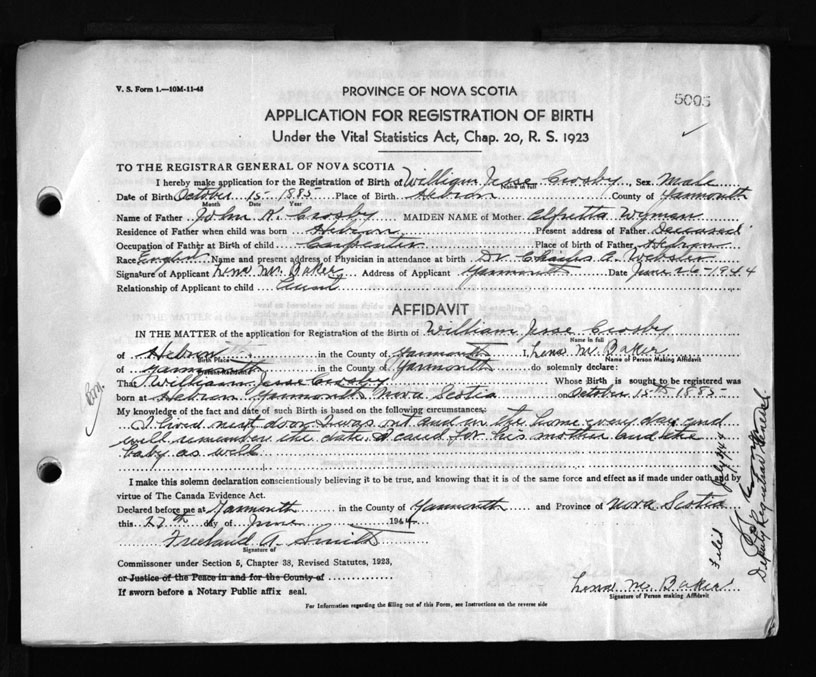 V. S. Form 1.—10M-11-43
PROVINCE OF NOVA SCOTIA
5005
APPLICATION FOR REGISTRATION OF BIRTH
Under the Vital Statistics Act, Chap. 20, R. S. 1923
TO THE REGISTRAR GENERAL OF NOVA SCOTIA
I hereby make application for the Registration of Birth of William Jesse Crosby Sex Male
Name in full
Date of Birth October 15 - 1885 Place of Birth Hebron County of Yarmouth
Month Date Year
Name of Father John K. Crosby MAIDEN NAME of Mother Alfretta Wyman
Residence of Father when child was born Hebron Present address of Father Deceased
Occupation of Father at Birth of child Carpenter Place of birth of Father Hebron
Race English Name and present address of Physician in attendance at birth Dr. Charles A. Webster
Signature of Applicant Mc Baker Address of Applicant Yarmouth Date June 26 - 1944
Relationship of Applicant to child Aunt
AFFIDAVIT
IN THE MATTER of the application for Registration of the Birth of William Jesse Crosby
Name in full
of Hebron in the County of Yarmouth I, Mc Baker
Birth Place Name of Person Making Affidavit
of Yarmouth in the County of Yarmouth do solemnly declare:
That William Jesse Crosby Whose Birth is sought to be registered was
born at Hebron Yarmouth Nova Scotia on October 15th 1885
My knowledge of the fact and date of such Birth is based on the following circumstances:
I lived next door & was out and in the home every day and
will remember the date. I cared for his mother and the
baby as well
I make this solemn declaration conscientiously believing it to be true, and knowing that it is of the same force and effect as if made under oath and by
virtue of The Canada Evidence Act.
Declared before me at Yarmouth in the County of Yarmouth and Province of Nova Scotia
this 27th day of June 1944
Freeland A. Smith
Signature of
Commissioner under Section 5, Chapter 38, Revised Statutes, 1923,
or Justice of the Peace in and for the County of
If sworn before a Notary Public affix seal.
Mc Baker
Signature of Person making Affidavit
For Information regarding the filling out of this Form, see Instructions on the reverse side
Filed July 4/44
Deputy Registrar General